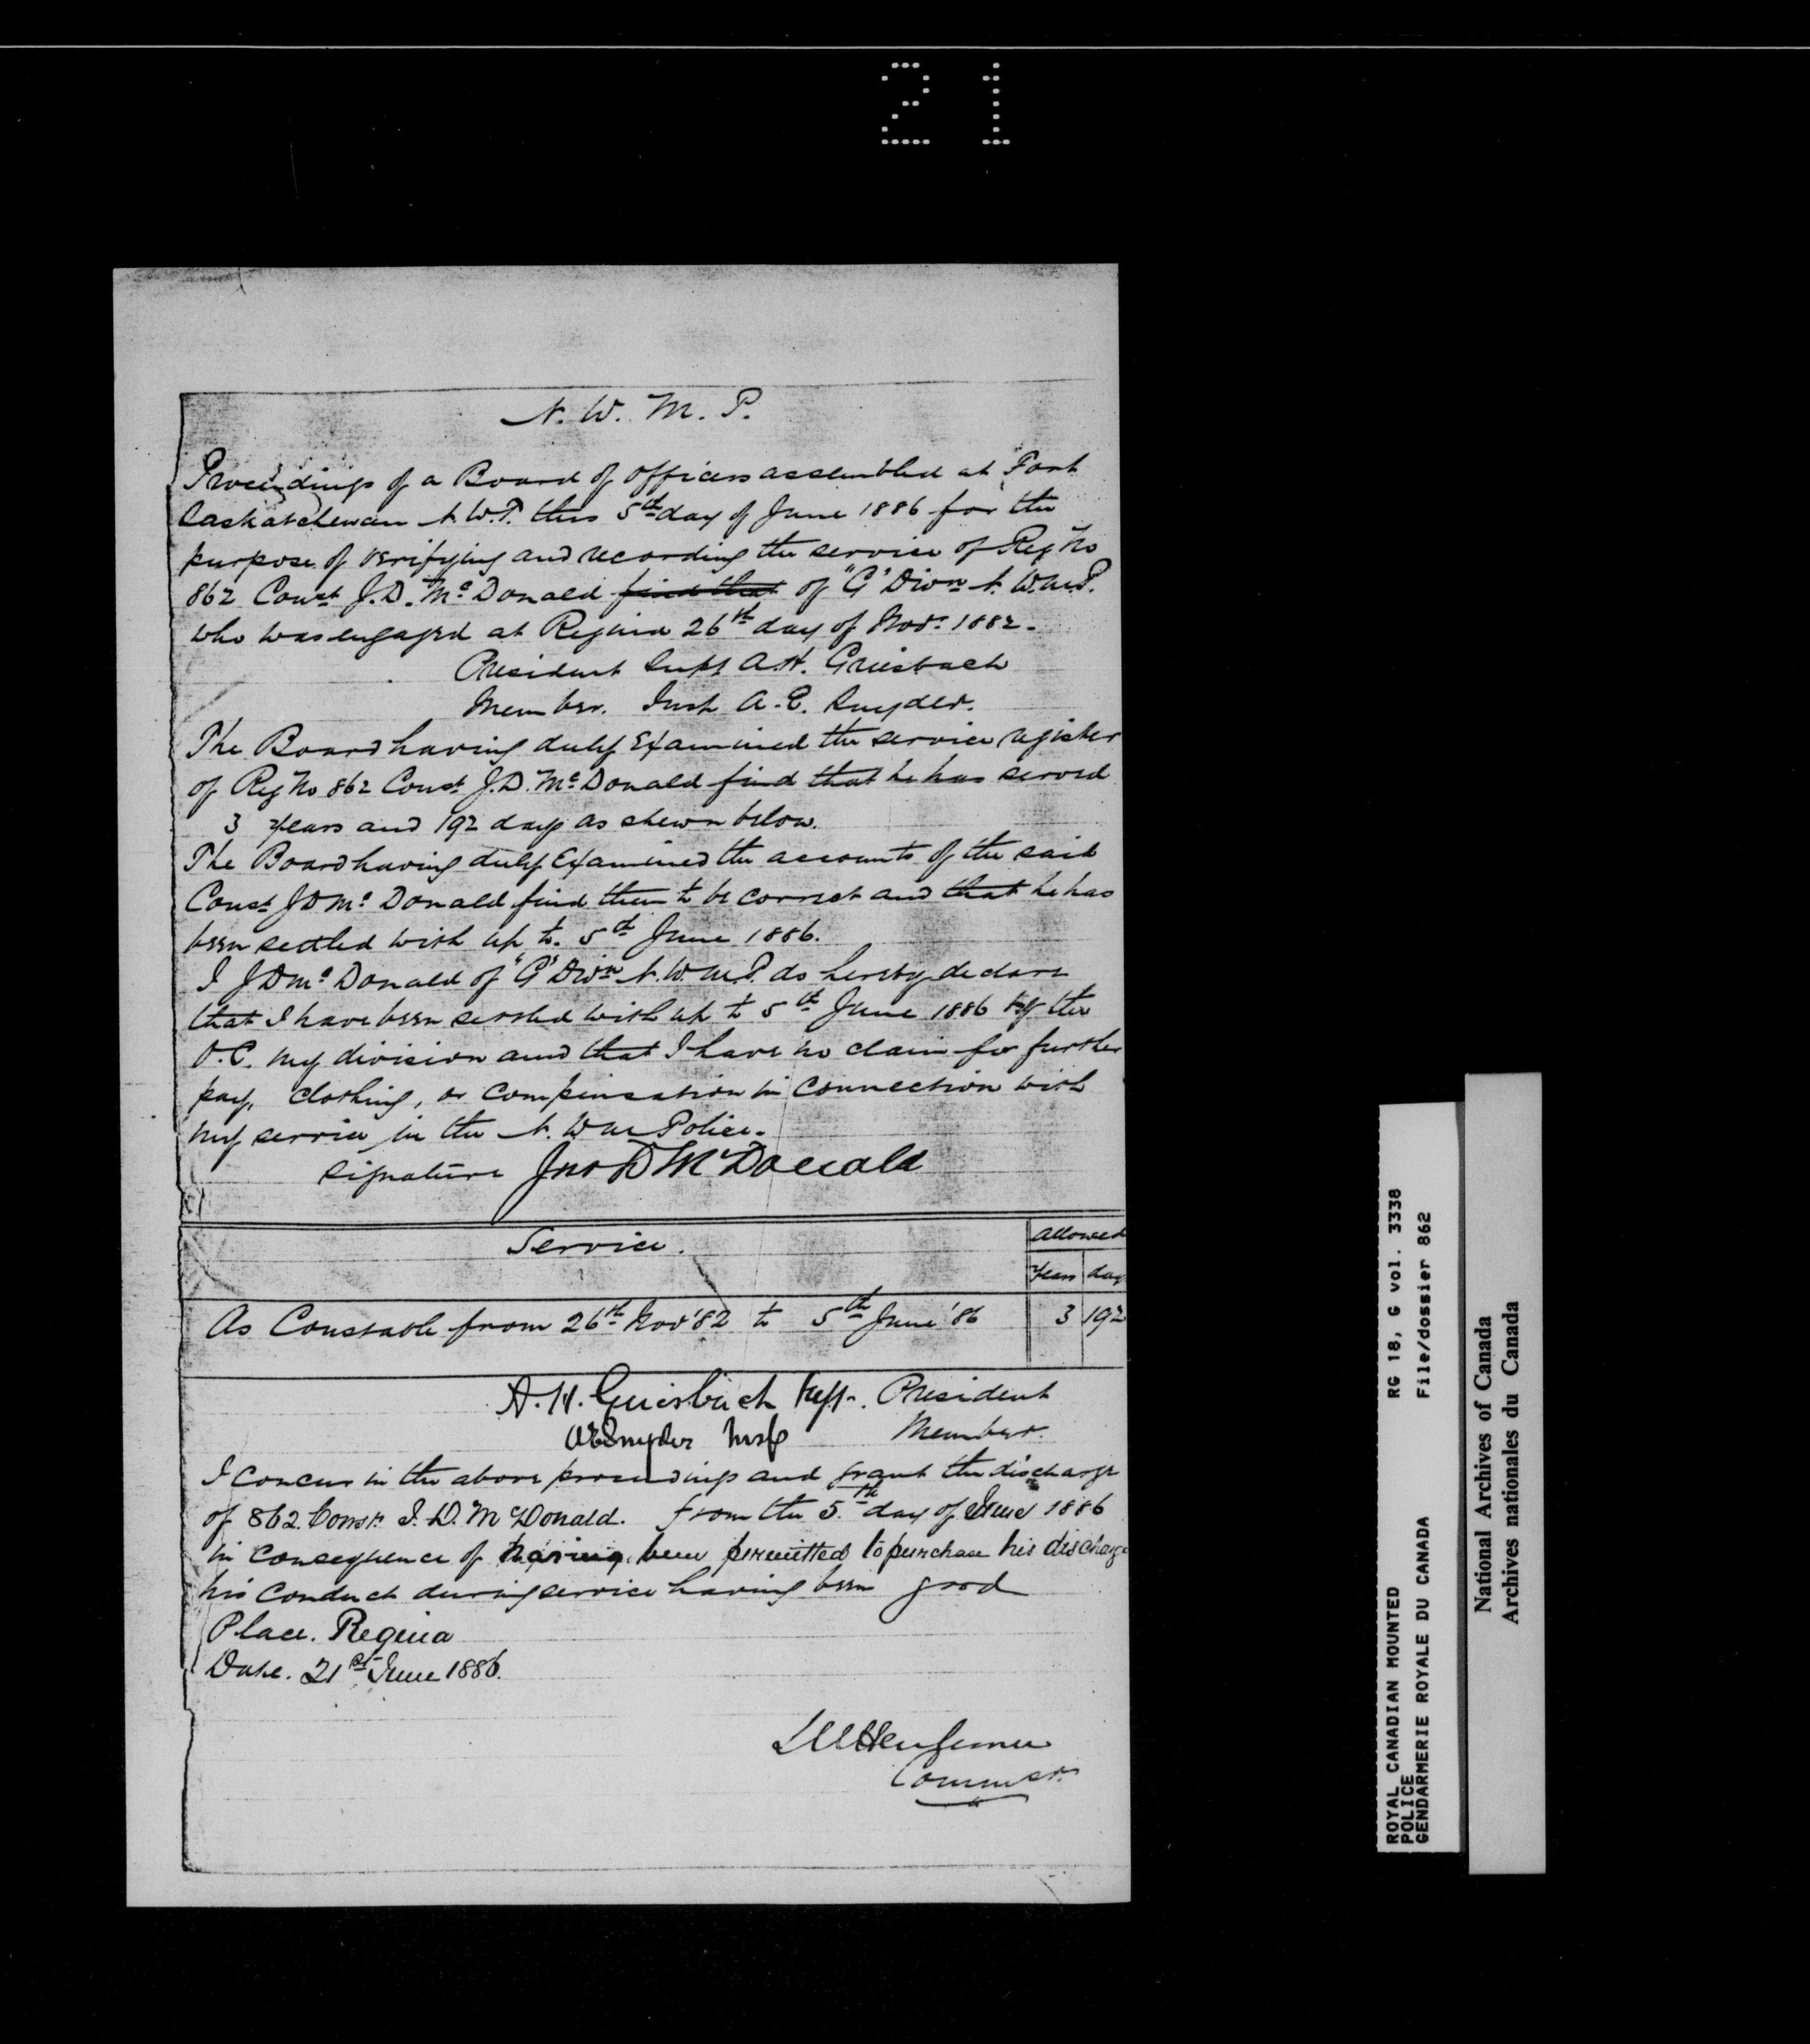 21
N. W. M. P.
Proceedings of a Board of officers assembled at Fort
Saskatchewan N.W.T. this 5th day of June 1886 for the
purpose of verifying and recording the service of Reg No
862 Const J.D. McDonald find that of "G" Divn N.W.M.P.
who was engaged at Regina 26th day of Novr 1882.
President Supt A.H. Griesbach
Member. Insp A.E. Snyder.
The Board having duly Examined the service register
of Reg No 862 Const J.D. McDonald find that he has served
3 years and 192 days as shewn below.
The Board having duly Examined the accounts of the said
Const J D McDonald find them to be correct and that he has
been settled with up to 5th June 1886.
I J D McDonald of "G" Divn N.W.M.P. do hereby declare
that I have been settled with up to 5th June 1886 by the
O.C. my division and that I have no claim for further
pay, clothing, or compensation in connection with
my service in the N. W M Police.
Signature Jno D McDonald
Service. Allowed
Years days
As Constable from 26th Nov '82 to 5th June '86 3 192
A. H. Griesbach Supt. President
A E Snyder Insp Member.
I concur in the above proceedings and grant the discharge
of 862 Const. J. D. McDonald. from the 5th day of June 1886
in consequence of having been permitted to purchase his discharge
his conduct during service having been good
Place. Regina
Date. 21st June 1886.
Commsr.
ROYAL CANADIAN MOUNTED RG 18, G vol. 3338
POLICE
GENDARMERIE ROYALE DU CANADA File/dossier 862
National Archives of Canada
Archives nationales du Canada